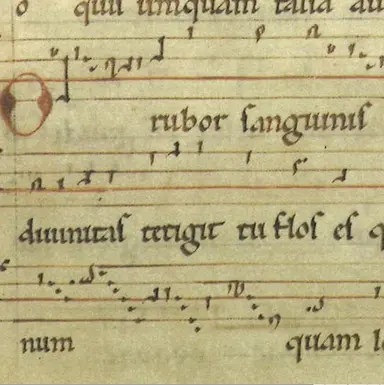 o quis umquam talia au
O rubor sanguinis
diuinitas tetigit tu flos es q
num quam le